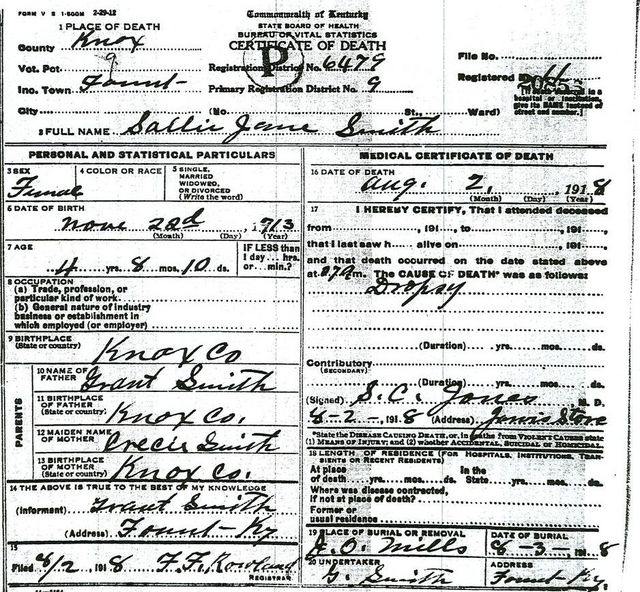 FORM V S 1-500M 2-29-12
Commonwealth of Kentucky
STATE BOARD OF HEALTH
BUREAU OF VITAL STATISTICS
CERTIFICATE OF DEATH
1 PLACE OF DEATH
County Knox
Vot. Pct. 9
Inc. Town Fount
City
P
Registration District No. 6479
Primary Registration District No. 9
File No.
Registered
[If death occurred in a hospital or institution, give its NAME instead of street and number.]
(No. St., Ward)
2 FULL NAME Sallie Jane Smith
PERSONAL AND STATISTICAL PARTICULARS
3 SEX
Female
4 COLOR OR RACE
5 SINGLE, MARRIED WIDOWED, OR DIVORCED (Write the word)
6 DATE OF BIRTH
nove 22d, 1913
(Month) (Day) (Year)
7 AGE
4 yrs. 8 mos. 10 ds.
IF LESS than 1 day... hrs. or... min.?
8 OCCUPATION
(a) Trade, profession, or
particular kind of work.
(b) General nature of industry
business or establishment in
which employed (or employer)
9 BIRTHPLACE
(State or country) Knox Co
PARENTS
10 NAME OF FATHER Grant Smith
11 BIRTHPLACE OF FATHER (State or country) Knox Co.
12 MAIDEN NAME OF MOTHER Crecie Smith
13 BIRTHPLACE OF MOTHER (State or country) Knox Co.
14 THE ABOVE IS TRUE TO THE BEST OF MY KNOWLEDGE
(Informant) Grant Smith
(Address) Fount-Ky
15
Filed 8/2, 1918 F. F. Rowland
REGISTRAR
MEDICAL CERTIFICATE OF DEATH
16 DATE OF DEATH
Aug. 2, 1918
(Month) (Day) (Year)
17 I HEREBY CERTIFY, That I attended deceased
from, 191, to, 191,
that I last saw h alive on, 191,
and that death occurred on the date stated above
at m. The CAUSE OF DEATH* was as follows:
Dropsy
(Duration) yrs. mos. ds.
Contributory
(SECONDARY)
(Duration) yrs. mos. ds.
(Signed) S. C. Jones M. D.
8-2-, 1918 (Address) Jarvis Store
*State the DISEASE CAUSING DEATH, or, in deaths from VIOLENT CAUSES state
(1) MEANS OF INJURY; and (2) whether ACCIDENTAL, SUICIDAL or HOMICIDAL.
18 LENGTH OF RESIDENCE (FOR HOSPITALS, INSTITUTIONS, TRANSIENTS OR RECENT RESIDENTS)
At place of death yrs. mos. ds. In the State yrs. mos. ds.
Where was disease contracted,
if not at place of death?
Former or
usual residence
19 PLACE OF BURIAL OR REMOVAL
J. O. Mills
DATE OF BURIAL
8-3-, 1918
20 UNDERTAKER
G. Smith
ADDRESS
Fount-Ky.